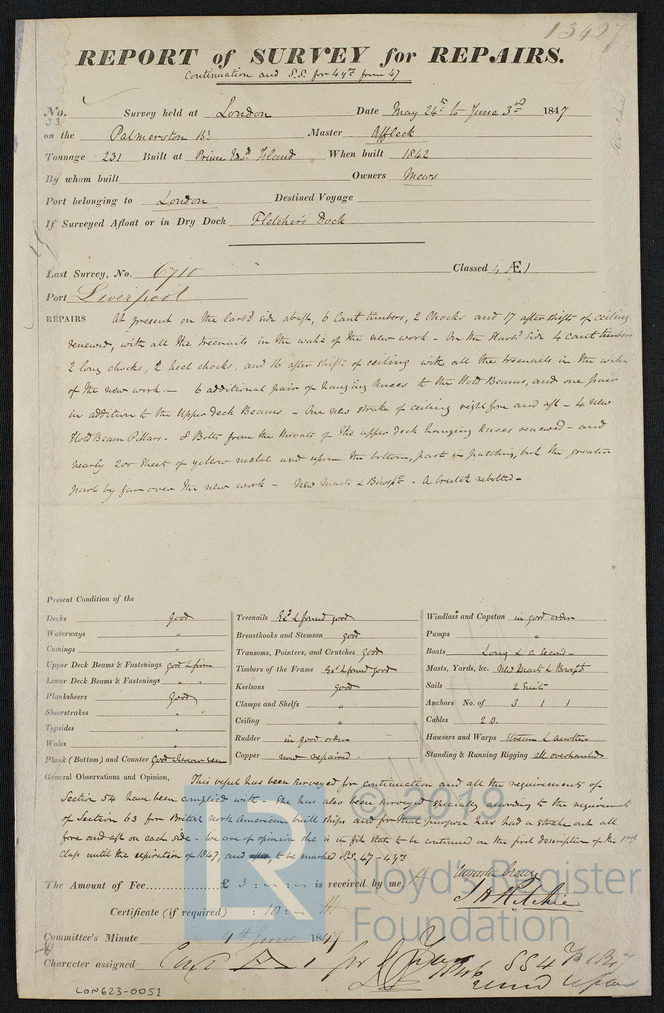 13407
REPORT of SURVEY for REPAIRS.
Continuation and S.S. for 4 yrs from 47
No. 53 Survey held at London Date May 24th to June 3rd 1847
on the Palmerston Bk Master Affleck
Tonnage 231 Built at Prince Edwd Island When built 1842
By whom built Owners Mews
Port belonging to London Destined Voyage
If Surveyed Afloat or in Dry Dock Fletcher's Dock
Last Survey, No. 6710 Classed 4 Æ 1
Port Liverpool
REPAIRS At present on the larbd side abaft, 6 Cant timbers, 2 Chocks and 17 after shifts of ceiling
renewed, with all the treenails in the wake of the new work - On the Starbd side 4 cant timbers
2 long chocks, 2 heel chocks, and 16 after shifts of ceiling with all the treenails in the wake
of the new work. - 6 additional pair of hanging knees to the Hold Beams, and one pair
in addition to the Upper Deck Beams - One new strake of ceiling right fore and aft - 4 new
Hold Beam Pillars. 8 Bolts from the throats of the upper deck hanging knees renewed - and
nearly 200 sheets of yellow metal put upon the bottom, part in patching, but the greater
part by far over the new work - New Masts & Bowspt - A Crutch rebolted -
Present Condition of the
Decks good
Waterways "
Comings "
Upper Deck Beams & Fastenings good & firm
Lower Deck Beams & Fastenings " "
Planksheers good
Sheerstrakes "
Topsides "
Wales "
Plank (Bottom) and Counter good where seen
Treenails Exd & found good
Breasthooks and Stemson good
Transoms, Pointers, and Crutches good
Timbers of the Frame Exd & found good
Keelsons good
Clamps and Shelfs "
Ceiling "
Rudder in good order
Copper now repaired.
Windlass and Capstan in good order
Pumps "
Boats Long & a second -
Masts, Yards, &c. New Mast & Bowspt
Sails 2 Suits
Anchors No. of 3 1 1
Cables 2 0.
Hawsers and Warps Stream & another
Standing & Running Rigging all overhauled
General Observations and Opinion, This vessel has been surveyed for continuation and all the requirements of
Section 54 have been complied with - She has also been surveyed specially according to the requirements
of Section 63 for British North American built ships and for that purpose has had a strake out all
fore and aft on each side - we are of opinion she is in fit state to be continued on the first description of the
class until the expiration of 1847, and to be marked S.S. 47 - 4 yrs
The Amount of Fee £ 3 : - : - is received by me,
Certificate (if required) : 10 : -
J H Ritchie
Committee's Minute 4th June 1847
Character assigned
LON623-0051
© 2019
Lloyd's Register
Foundation
LR